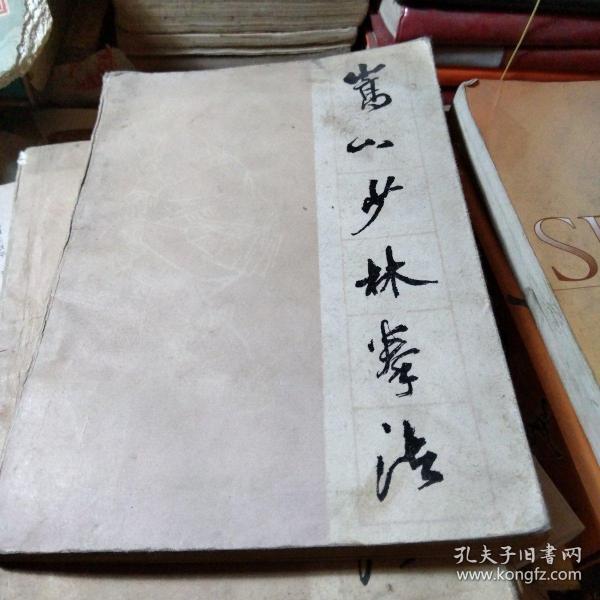 嵩山少林拳法
S
孔夫子旧书网
www.kongfz.com